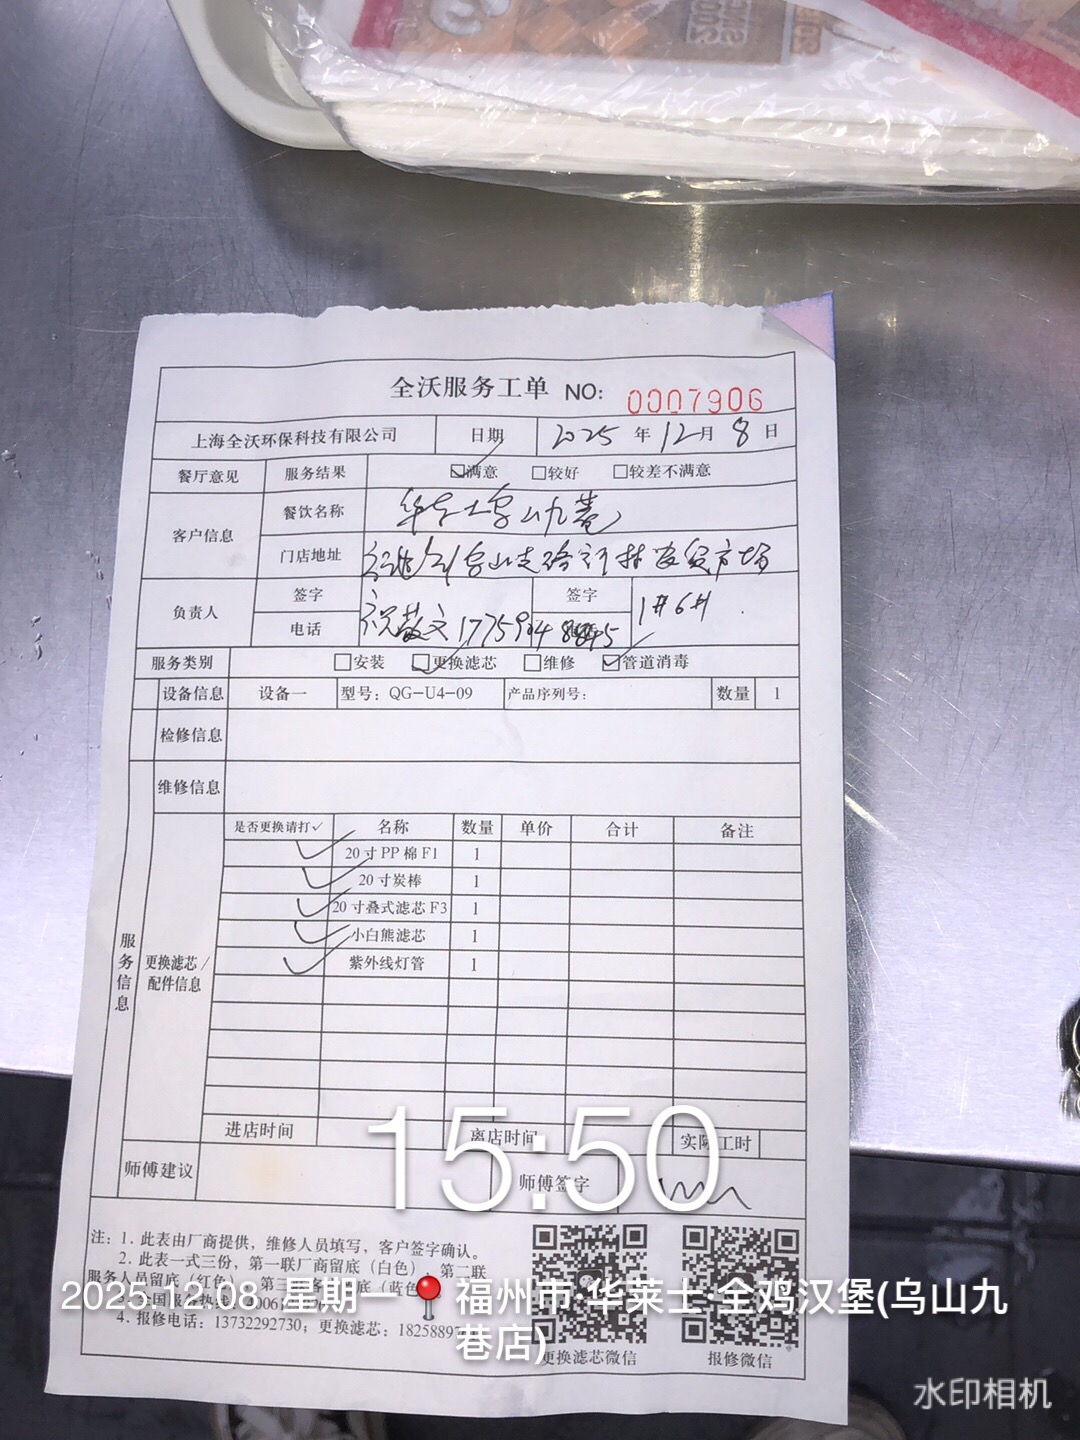 全沃服务工单 NO: 0007906
上海全沃环保科技有限公司 日期 2025 年 12 月 8 日
餐厅意见 服务结果 ☑满意 □较好 □较差不满意
客户信息 餐饮名称 华莱士乌山九巷
门店地址 乌山支路 农贸市场
负责人 签字 签字 1#6#
电话
服务类别 □安装 ☑更换滤芯 □维修 ☑管道消毒
设备信息 设备一 型号：QG-U4-09 产品序列号： 数量 1
检修信息
维修信息
服务信息
更换滤芯/配件信息
是否更换请打✓ 名称 数量 单价 合计 备注
✓ 20寸PP棉F1 1
✓ 20寸炭棒 1
✓ 20寸叠式滤芯F3 1
✓ 小白熊滤芯 1
✓ 紫外线灯管 1
进店时间 离店时间 实际工时
15:50
师傅建议 师傅签字
注：1. 此表由厂商提供，维修人员填写，客户签字确认。
2. 此表一式三份，第一联厂商留底（白色），第二联
服务人员留底（红色），第三 底（蓝色
全国服务热线
4. 报修电话：13732292730；更换滤芯：1825889
更换滤芯微信 报修微信
2025.12.08 星期一 福州市·华莱士·全鸡汉堡(乌山九
巷店)
水印相机